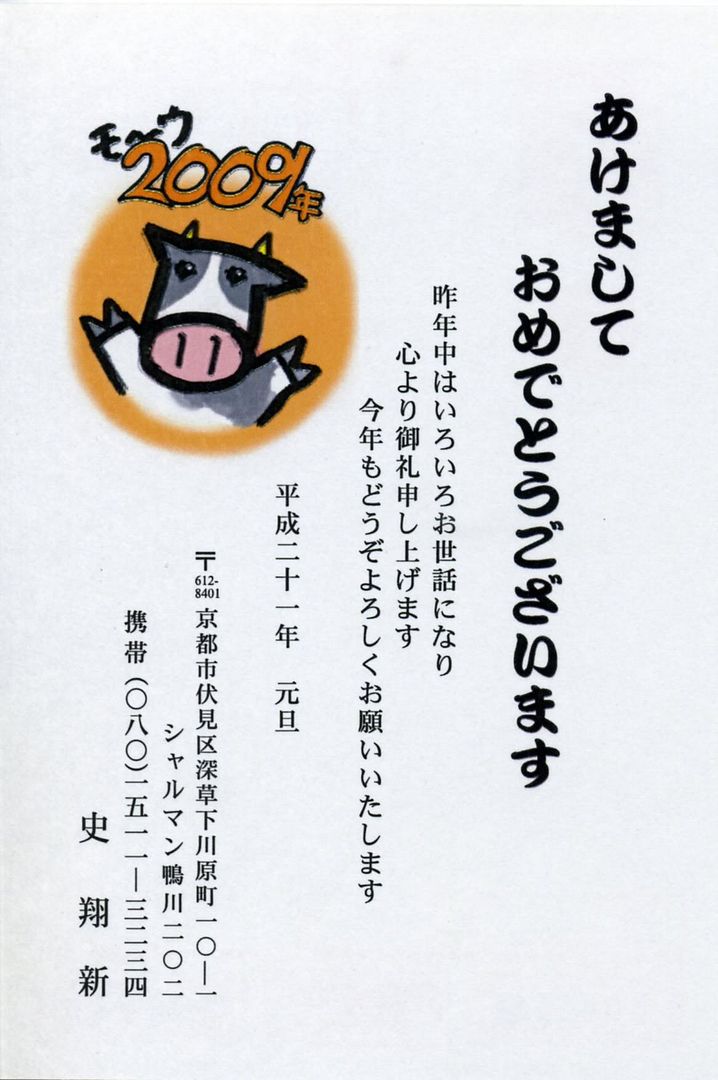 あけまして
おめでとうございます
昨年中はいろいろお世話になり
心より御礼申し上げます
今年もどうぞよろしくお願いいたします
モ〜ウ
2009年
平成二十一年　元旦
〒612-8401 京都市伏見区深草下川原町一〇―一
シャルマン鴨川二〇二
携帯(〇八〇)一五一一―三二三四
史　翔　新